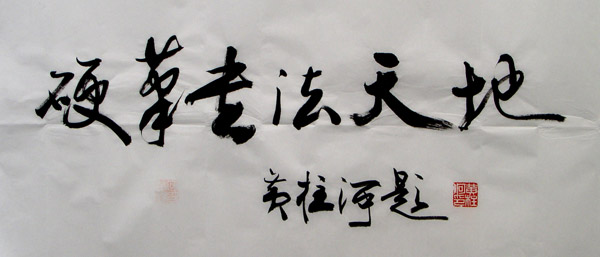 硬筆书法天地
黄柱河题